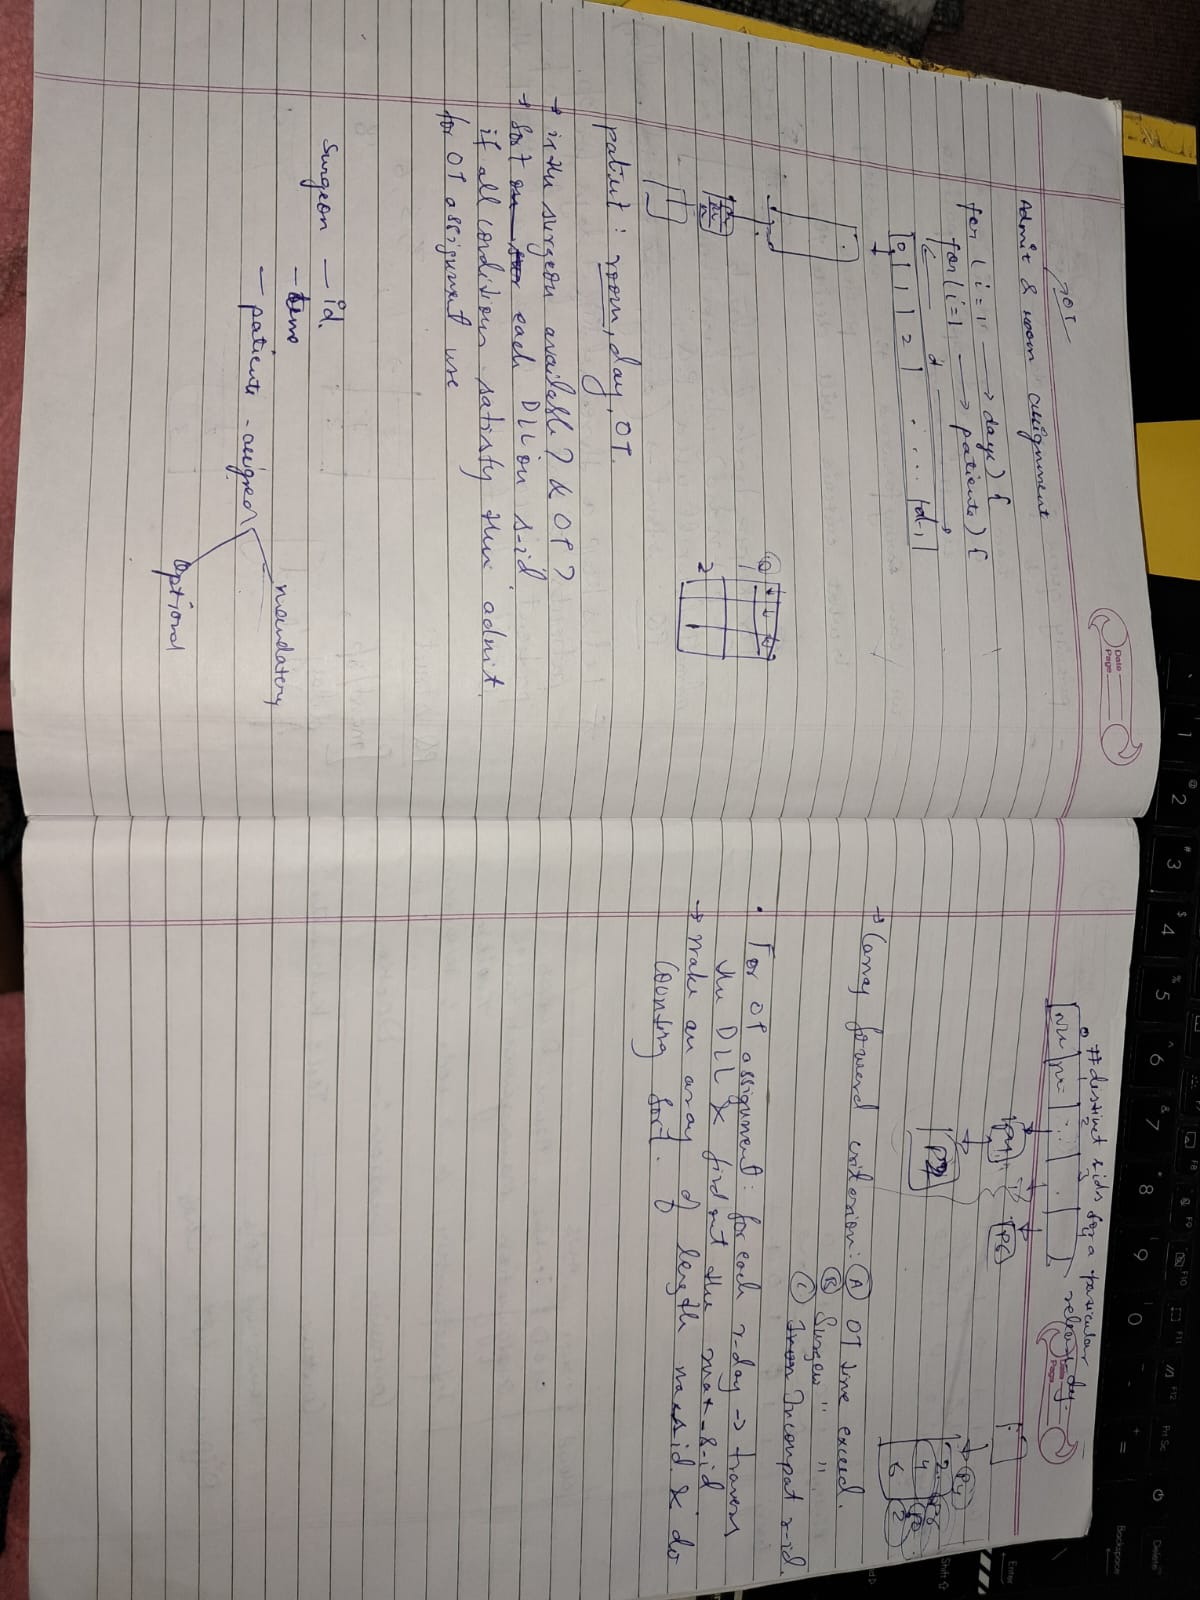 → OT
Admit & room assignment
for ( i = 1 → days ) {
for ( i = 1 → patients ) {
d
0 1 1 2 1 . . . . d-1
2
patient : room, day, OT.
→ is the surgeon available ? & OT ?
→ Sort each DLL on s-id
if all conditions satisfy then admit.
for OT assignment use
Surgeon — id.
—
— patients - assigned
mandatory
Optional
Date
Page
# distinct sids for a particular
release-day.
Date
Page
P6
P4
2
4
6
2
→ Carry forward criterion : (A) OT time exceed.
(B) Surgeon " "
(C) Incompat r-id.
• For OT assignment : for each r-day → traverse
the DLL & find out the max-s-id
→ Make an array of length max sid & do
Counting Sort.
1
2
3
4
5
6
7
8
9
0
F7
F8
F9
F10
F11
F12
Prt Sc
Delete
Backspace
Enter
Shift